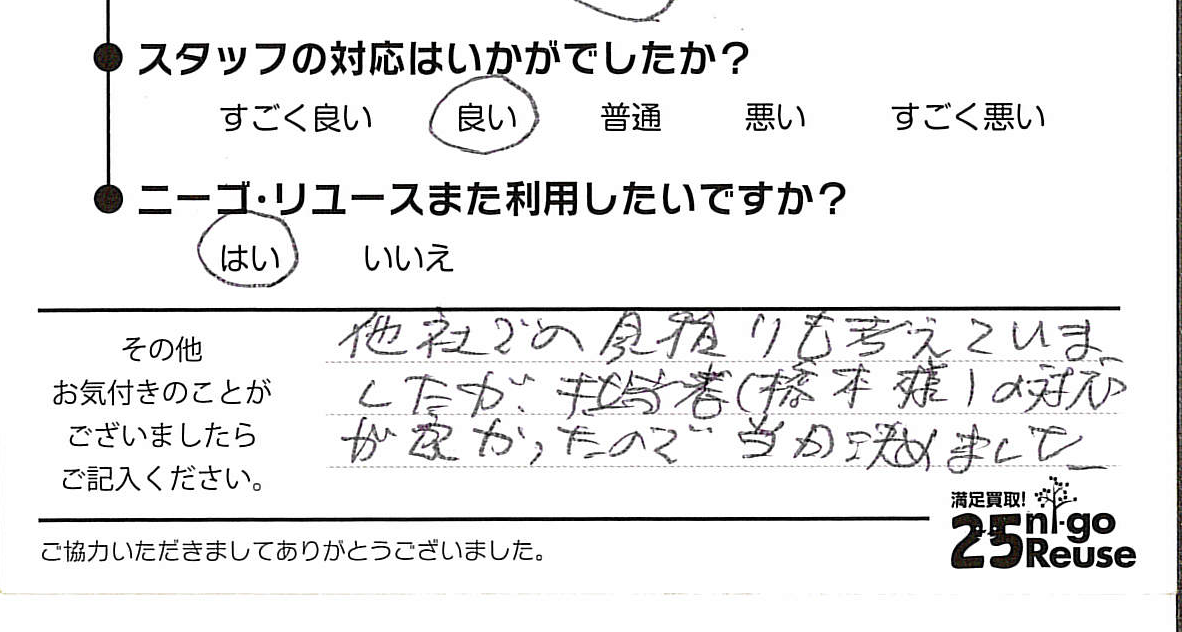 スタッフの対応はいかがでしたか？
すごく良い 良い 普通 悪い すごく悪い
ニーゴ・リユースまた利用したいですか？
はい いいえ
その他
お気付きのことが
ございましたら
ご記入ください。
他社での見積りも考えていま
したが、担当者(橋本様)の対応
が良かったので 決めました
満足買取!
25 ni-go
Reuse
ご協力いただきましてありがとうございました。